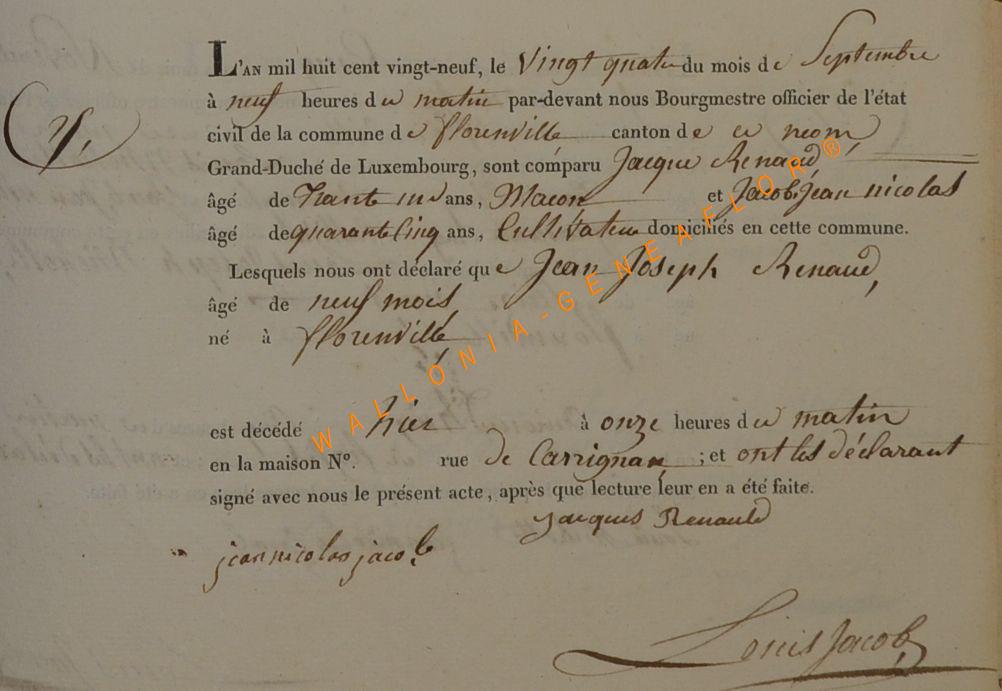 L'AN mil huit cent vingt-neuf, le Vingt quatre du mois de Septembre
à neuf heures du matin par-devant nous Bourgmestre officier de l'état
civil de la commune de florenville canton de ce nom
Grand-Duché de Luxembourg, sont comparu Jacque Renaud
âgé de Trante ans, Macon et Jacob jean nicolas
âgé de quarante Cinq ans, Cultivateur domiciliés en cette commune.
Lesquels nous ont déclaré que Jean Joseph Renaud,
âgé de neuf mois
né à florenville
est décédé hier à onze heures du matin
en la maison N°. rue de Carrignan ; et ont les déclarant
signé avec nous le présent acte, après que lecture leur en a été faite.
Jacques Renauld
jean nicolas jacob
Louis Jacob
WALLONIA-GENEAFLOR®